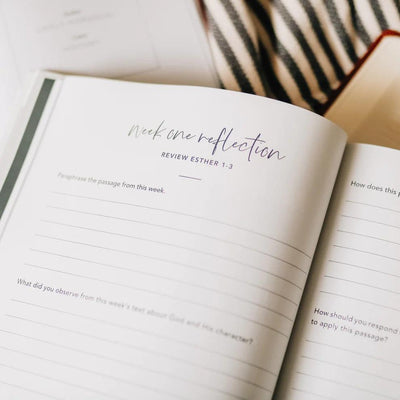 week one reflection
REVIEW ESTHER 1-3
Paraphrase the passage from this week.
What did you observe from this week's text about God and His character?
How does this p
How should you respond
to apply this passage?